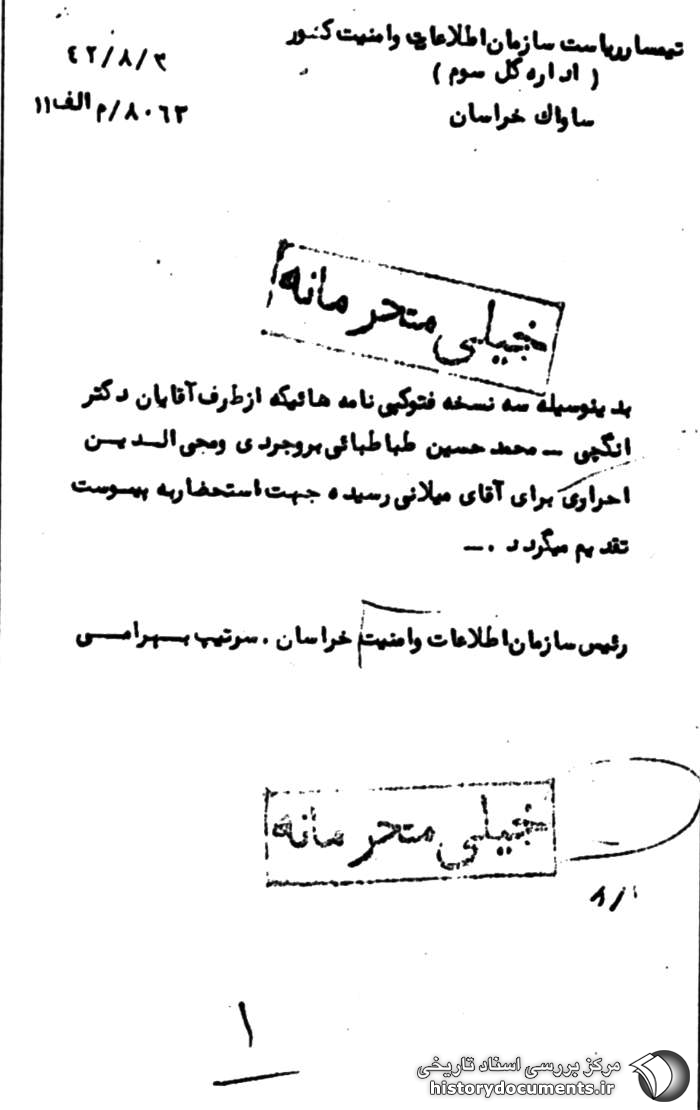 تیمسار ریاست سازمان اطلاعات وامنیت کشور
( اداره کل سوم )
ساواك خراسان
۴۲/۸/۳
۸۰۶۳/م الف۱۱
خیلی محرمانه
بدینوسیله سه نسخه فتوکپی نامه هائیکه ازطرف آقایان دکتر
انگجی – محمد حسین طباطبائی بروجردی ومجی الدین
احراری برای آقای میلانی رسیده جهت استحضاربه پیوست
تقدیم میگردد .–
رئیس سازمان اطلاعات وامنیت خراسان . سرتیپ بهرامی
خیلی محرمانه
۱
مرکز بررسی اسناد تاریخی
historydocuments.ir